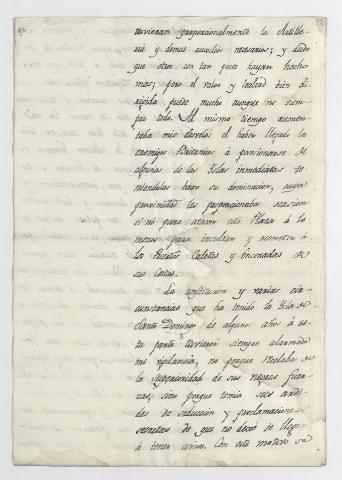 tuvieran proporcionalmente la Artille-
ria y demas auxilios necesarios; y dudo
que otros con tan pocos hayan hecho
mas; pero el valor y lealtad bien di-
rigida puede mucho aunque no siem-
pre todo. Al mismo tiempo aumen-
taba mis desvelos el haber llegado los
enemigos Britanicos á posesionarse de
algunas de las Islas inmediatas te-
niendolas bajo su dominacion, cuya
proximidad les proporcionaba ocasion
si no para atacar esta Plaza á lo
menos para insultar y acometer á
los Puertos Caletas y Ensenadas de
sus Costas.
La constitucion y varias cir-
cunstancias que ha tenido la Isla de
Santo Domingo de algunos años á es-
ta parte tuvieron siempre alarmada
mi vigilancia, no porque recelaba de
la superioridad de sus negras fuer-
zas, sino porque temia sus ardi-
des de seduccion y proclamaciones
secretas de que no dexó de llegar
á tener aviso. Con este motivo se